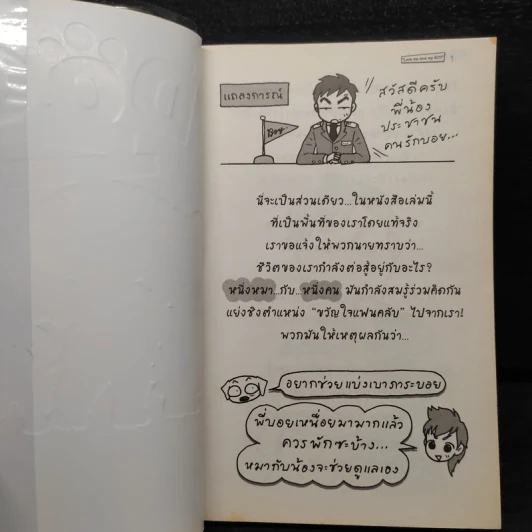 "Love me love my BOY" 1
แถลงการณ์
Boy
สวัสดีครับ
พี่น้อง
ประชาชน
คนรักบอย...
นี่จะเป็นส่วนเดียว...ในหนังสือเล่มนี้
ที่เป็นพื้นที่ของเราโดยแท้จริง
เราขอแจ้งให้พวกนายทราบว่า...
ชีวิตของเรากำลังต่อสู้อยู่กับอะไร?
หนึ่งหมา...กับ...หนึ่งคน มันกำลังสมรู้ร่วมคิดกัน
แย่งชิงตำแหน่ง "ขวัญใจแฟนคลับ" ไปจากเรา!
พวกมันให้เหตุผลกันว่า...
อยากช่วยแบ่งเบาภาระบอย
พี่บอยเหนื่อยมามากแล้ว
ควรพักซะบ้าง...
หมากับน้องจะช่วยดูแลเอง